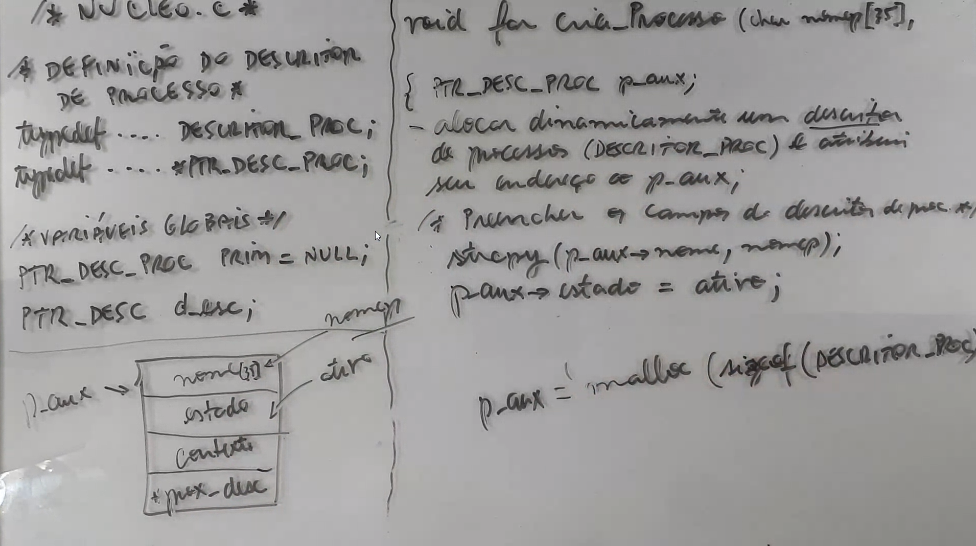 /* NUCLEO.C *
/* DEFINIÇÃO DO DESCRITOR
DE PROCESSO *
typedef .... DESCRITOR_PROC;
typedef .... *PTR_DESC_PROC;
/* VARIÁVEIS GLOBAIS */
PTR_DESC_PROC PRIM = NULL;
PTR_DESC d_esc;
p_aux →
nome[35]
estado
contexto
*prox_desc
nomep
ativo
void far cria_Processo (char nomep[35],
{ PTR_DESC_PROC p_aux;
- alocar dinamicamente um descritor
de processos (DESCRITOR_PROC) e atribuir
seu endereço a p_aux;
/* Preencher os campos do descritor de proc. */
strcpy(p_aux→nome, nomep);
p_aux→estado = ativo;
p_aux = malloc (sizeof (DESCRITOR_PROC)